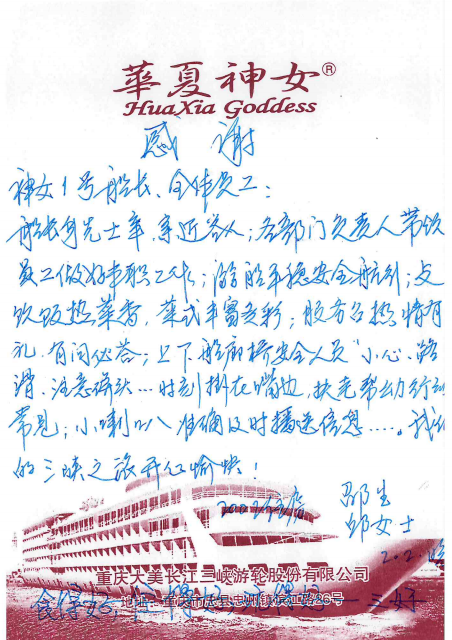 華夏神女®
HuaXia Goddess
感谢
神女1号船长、全体员工：
船长身先士卒，亲近客人；各部门负责人带领
员工做好本职工作；游船平稳安全航行；
饮饭热菜香，菜式丰富多彩；服务台热情有
礼，有问必答；上下船廊桥安全人员“小心、路
滑、注意碰头…时刻挂在嘴边，扶老帮幼行动
常见；小喇叭准确及时播送信息……。我们
的三峡之旅开心愉快！
邹生
邹女士
重庆大美长江三峡游轮股份有限公司
地址：重庆市忠县忠州镇滨江路26号
三好